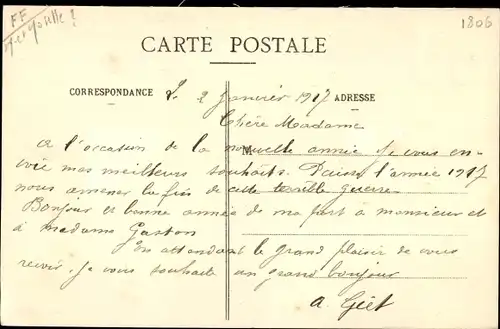 FF
1806
CARTE POSTALE
CORRESPONDANCE
ADRESSE
2 Janvier 1917
Chère Madame
A l'occasion de la nouvelle année je vous en-
voie mes meilleurs souhaits. Puisse l'année 1917
nous amener la fin de cette terrible guerre
Bonjour et bonne année de ma part à monsieur et
à madame Gaston
En attendant le grand plaisir de vous
revoir, je vous souhaite un grand bonjour
M